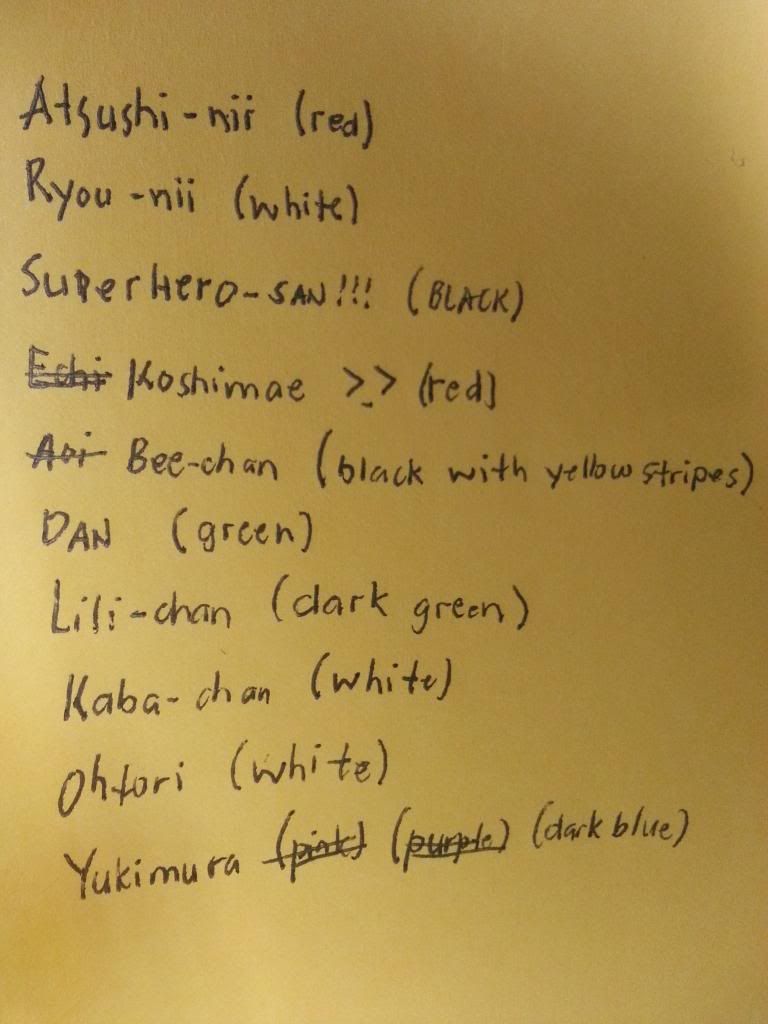 Atsushi-nii (red)
Ryou-nii (white)
SuperHero-SAN!!! (BLACK)
Echi Koshimae >.> (red)
Aoi Bee-chan (black with yellow stripes)
DAN (green)
Lili-chan (dark green)
Kaba-chan (white)
Ohtori (white)
Yukimura (pink) (purple) (dark blue)